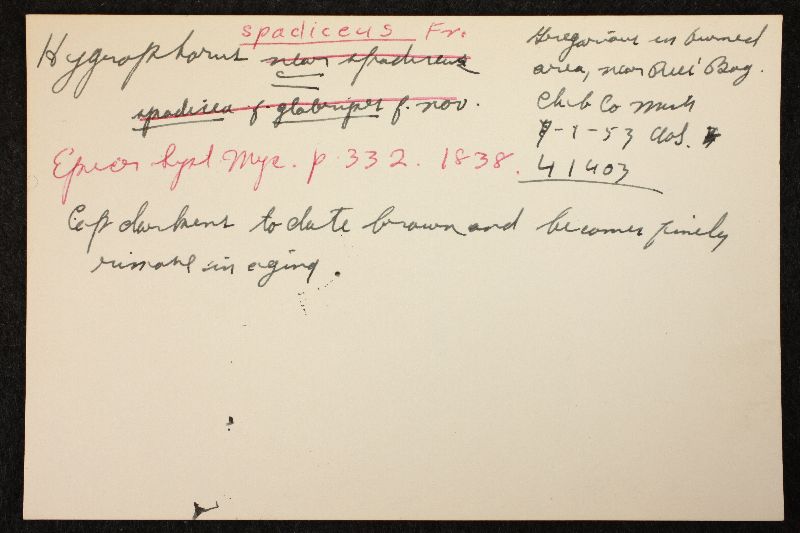 spadiceus Fr.
Hygrophorus near spadiceus
spadicea f. glabripes f. nov.
Epicr Syst Myc. p. 332. 1838.
Gregarious in burned
area, near Bay.
Cheb Co Mich
7-1-53 AHS.
41403
Cap darkens to date brown and becomes finely
rimose in aging.